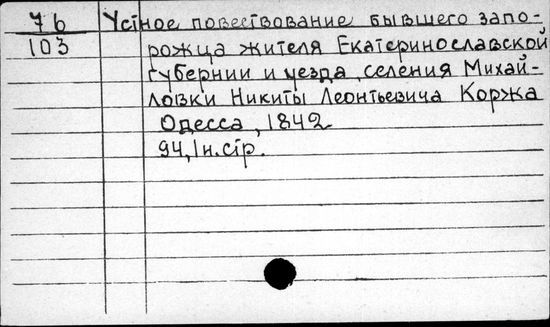 7б Устное повествование бывшего запо-
103 рожца жителя Екатеринославской
губернии и уезда, селения Михай-
ловки Никиты Леонтьевича Коржа
Одесса, 1842
94, 1 н. стр.